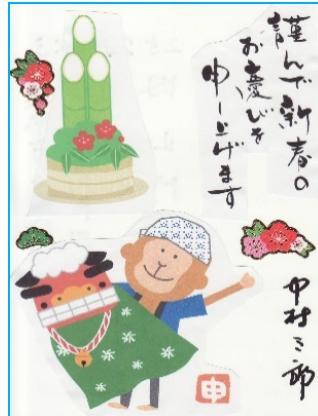 謹んで新春の
お慶びを
申し上げます
中村三郎
申